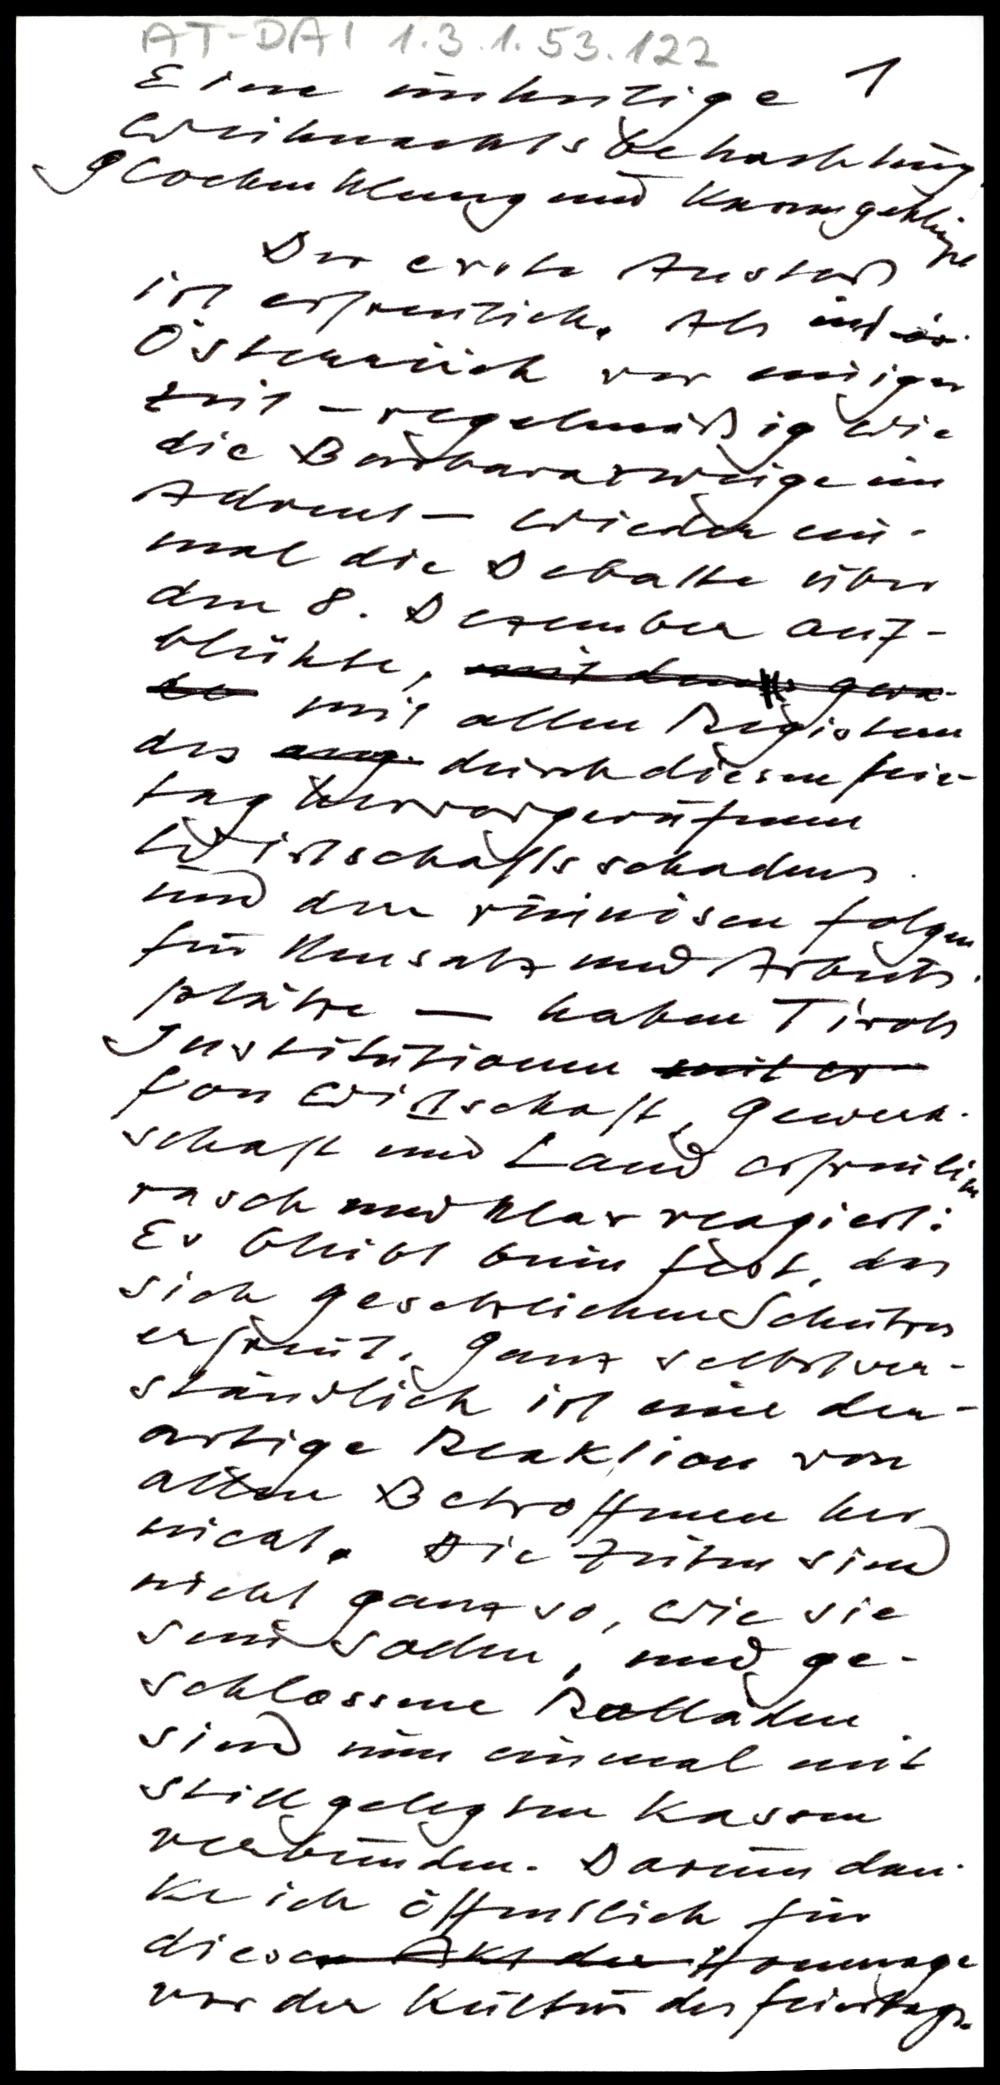 AT-DAI 1.3.1.53.122
Eine unheilige 1
Weihnachtsbetrachtung.
Glockenklang und Kassengeklingel
Der erste Anstoß
ist erfreulich. Als in ö
Österreich vor einiger
Zeit – regelmäßig wie
die Barbarazweige im
Advent – wieder ein-
mal die Debatte über
den 8. Dezember auf-
blühte, mit den gera-
de mit allen Registern
des ang. durch diesen Feier-
tag hervorgerufenen
Wirtschaftsschadens
und den ruinösen Folgen
für Umsatz und Arbeits-
plätze – haben Tirols
Institutionen mit er
von Wirtschaft, Gewerk-
schaft und Land erfreulich
rasch und klar reagiert:
Es bleibt beim Fest, das
sich gesetzlichen Schutzes
erfreut. Ganz selbstver-
ständlich ist eine der-
artige Reaktion von
allen Betroffenen her
nicht. Die Zeiten sind
nicht ganz so, wie sie
sein sollen, und ge-
schlossene Rolläden
sind nun einmal mit
stillgelegten Kassen
verbunden. Darum dan-
ke ich öffentlich für
diesen Akt der Hommage
vor der Kultur des Feiertags.